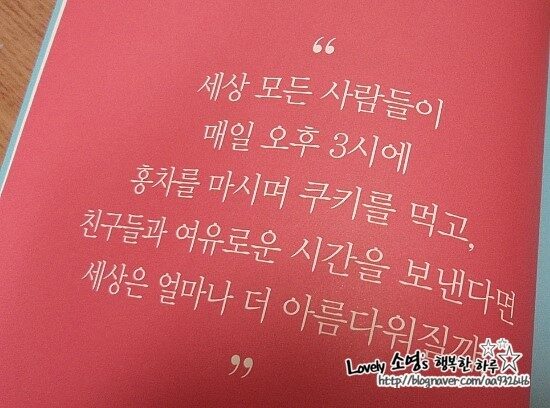 “
세상 모든 사람들이
매일 오후 3시에
홍차를 마시며 쿠키를 먹고,
친구들과 여유로운 시간을 보낸다면
세상은 얼마나 더 아름다워질까
”
Lovely 소영's 행복한 하루☆☆
http://blog.naver.com/aa932646